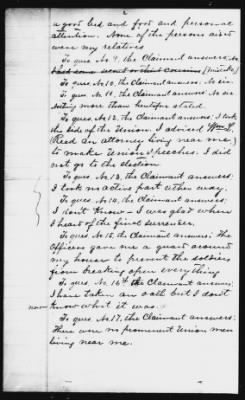 2
a good bed and food and personal
attention. None of the persons aided
were my relatives
To ques. No. 9, the Claimant answers, No
had some second or third cousins (Mistake)
To ques. No. 10, the Claimant answers; No sir.
To ques. No. 11, the Claimant answers; No sir
nothing more than heretofore stated.
To ques. No. 12, the Claimant answers; I took
the side of the Union. I advised Wm L.
(Reed an attorney living near me)
to make Union Speeches. I did
not go to the election
To ques. No. 13, the Claimant answers;
I took no active part either way.
To ques. No. 14, the Claimant answers;
I don't know – I was glad when
I heard of the final surrender.
To ques. No. 15, the Claimant answers; The
Officers gave me a guard around
my house to prevent the soldiers
from breaking open everything
To ques. No. 16, the Claimant answers;
I have taken an oath but I don't
know what it was.
To ques. No. 17, the Claimant answers;
There were no prominent Union men
living near me.